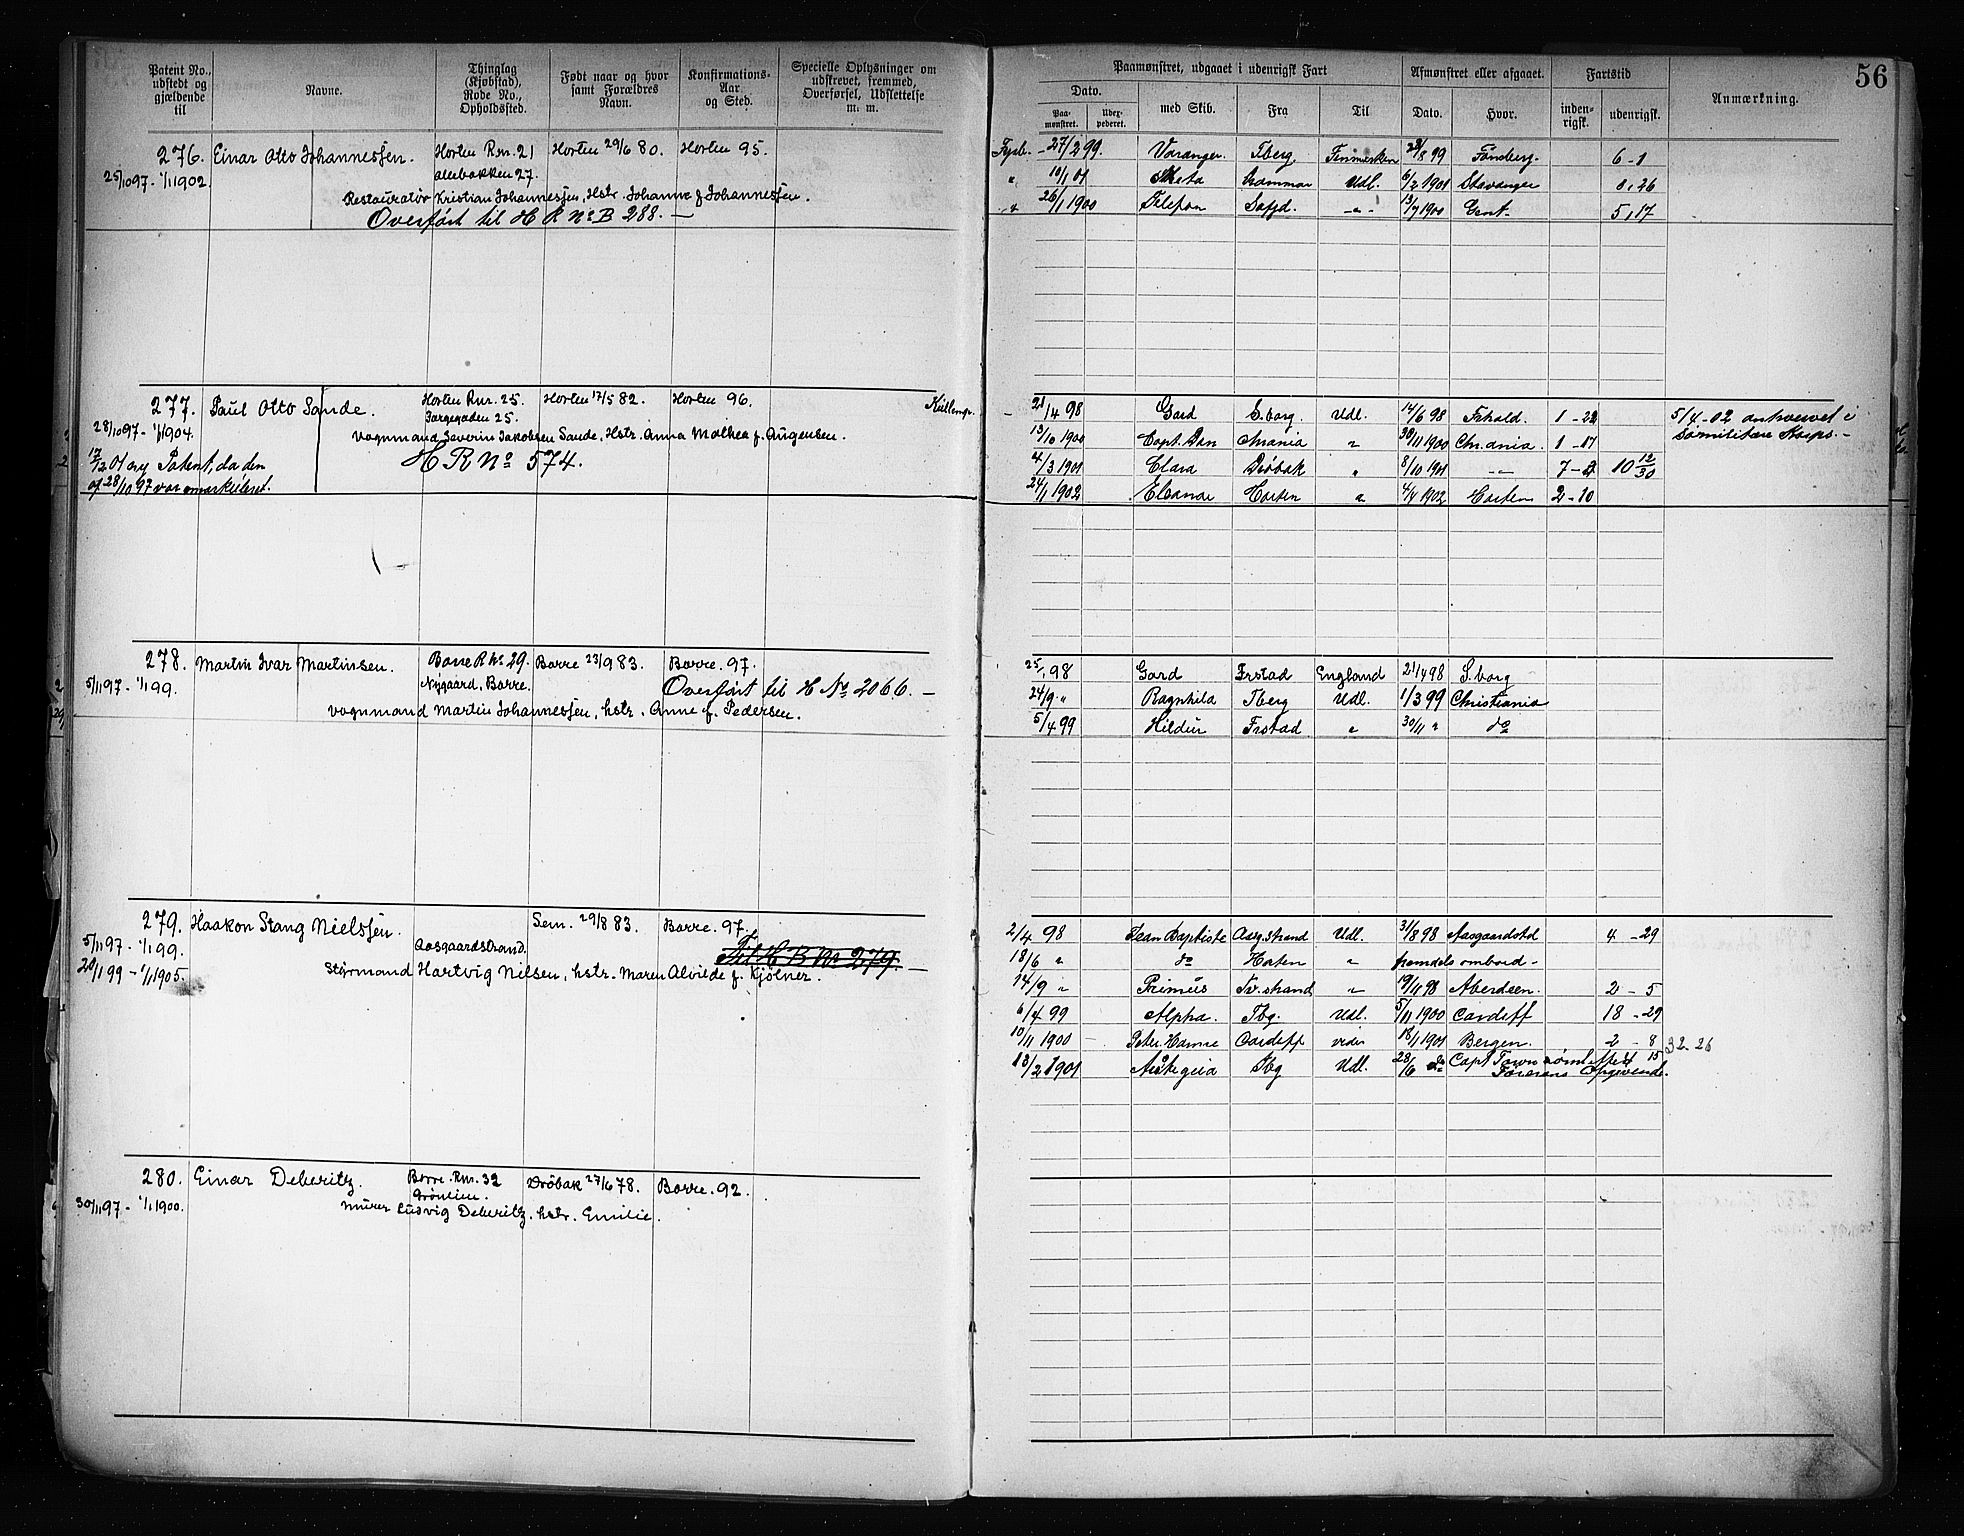 Patent No., udstedt og gjældende til
Navne.
Thinglag (Kjøbstad), Rode No., Opholdssted.
Født naar og hvor samt Forældres Navn.
Konfirmations-Aar og Sted.
Specielle Oplysninger om udskrevet, fremmed, Overførsel, Udslettelse m. m.
276. Einar Otto Johannessen. Horten Rnr. 21 Horten 29/6 80. Horten 95.
25/10 97 - 1/1 1902.
Restauratør Kristian Johannessen, Hstr. Johanne f Johannessen.
Overført til H R No B 288. —
277. Paul Otto Sande. Horten Rnr. 25. Horten 17/5 82. Horten 96.
28/10 97 - 1/1 1904. Torvegaden 25.
Vognmand Severin Jakobsen Sande, Hstr. Anna Mathea f. Augensen.
17/12 01 ny Patent, da den
af 28/10 97 var
H R No 574.
278. Martin Ivar Martinsen. Borre R No 29. Borre 23/9 83. Borre. 97.
5/11 97 - 1/1 99. Nygaard, Borre. Overført til H No 2066. —
Vognmand Martin Johannessen, hstr. Anne f. Pedersen.
279. Haakon Stang Nielssen. Sem. 29/8 83. Borre. 97.
5/11 97 - 1/1 99. Aasgaardstrand. Til H R No 279. —
20/1 99 - 1/1 1905. Styrmand Hartvig Nilsen, hstr. Maren Alvilde f. Kjölner.
280. Einar Deberitz. Borre. Rnr. 32 Dröbak 27/6 78. Borre. 92.
30/11 97 - 1/1 1900. Grönlien.
Murer Ludvig Deberitz, hstr. Emilie.
56
Paamønstret, udgaaet i udenrigsk Fart
Afmønstret eller afgaaet.
Fartstid
Anmærkning.
Dato.
Paa-mønstret.
Udex-pederet.
med Skib.
Fra
Til
Dato.
Hvor.
inden-rigsk.
udenrigsk.
27/2 99. Varanger Tberg. Finmarken /8 99 Tönsberg. 6 - 1
" 10/1 01 Meta Drammen Udl. 6/2 1901 Stavanger 0, 26
" 26/1 1900 Telefon Safjd. -"- 13/7 1900 Gent. 5, 17
21/4 98 Gard S.borg. Udl. 14/6 98 Frhald. 1 - 22 5/4 - 02 antvervet i
13/10 1900 Capt. Dan Chrania " 30/11 1900 Chr.ania. 1 - 17 Sömilitære Korps. -
4/3 1901 Clara Dröbak " 8/10 1901 -"- 7 - 2 10 12/30
24/1 1902 Eleanor Horten " 4/4 1902 Horten 2 - 10
25/1 98 Gard Frstad England 21/4 98 S.borg
24/9 " Ragnhild Tberg Udl. 1/3 99 Christiania
5/4 99 Hildur Frstad " 30/11 " do
2/4 98 Jean Baptiste Aasg.strand Udl. 31/8 98 Aasgaardstd 4 - 29
18/6 " do Horten " fremdeles ombord -
14/9 " Primus Tv.strand " 19/11 98 Aberdeen. 2 - 5
6/4 99 Alpha. Tbg. Udl. 5/11 1900 Cardiff 18 - 29
10/11 1900 - Peter Hamre Cardiff vider 18/1 1901 Bergen. 2 - 8 32 - 26
13/2 1901 Tbg Udl. 28/6 do Capt Town rømt 15
Opgivende.